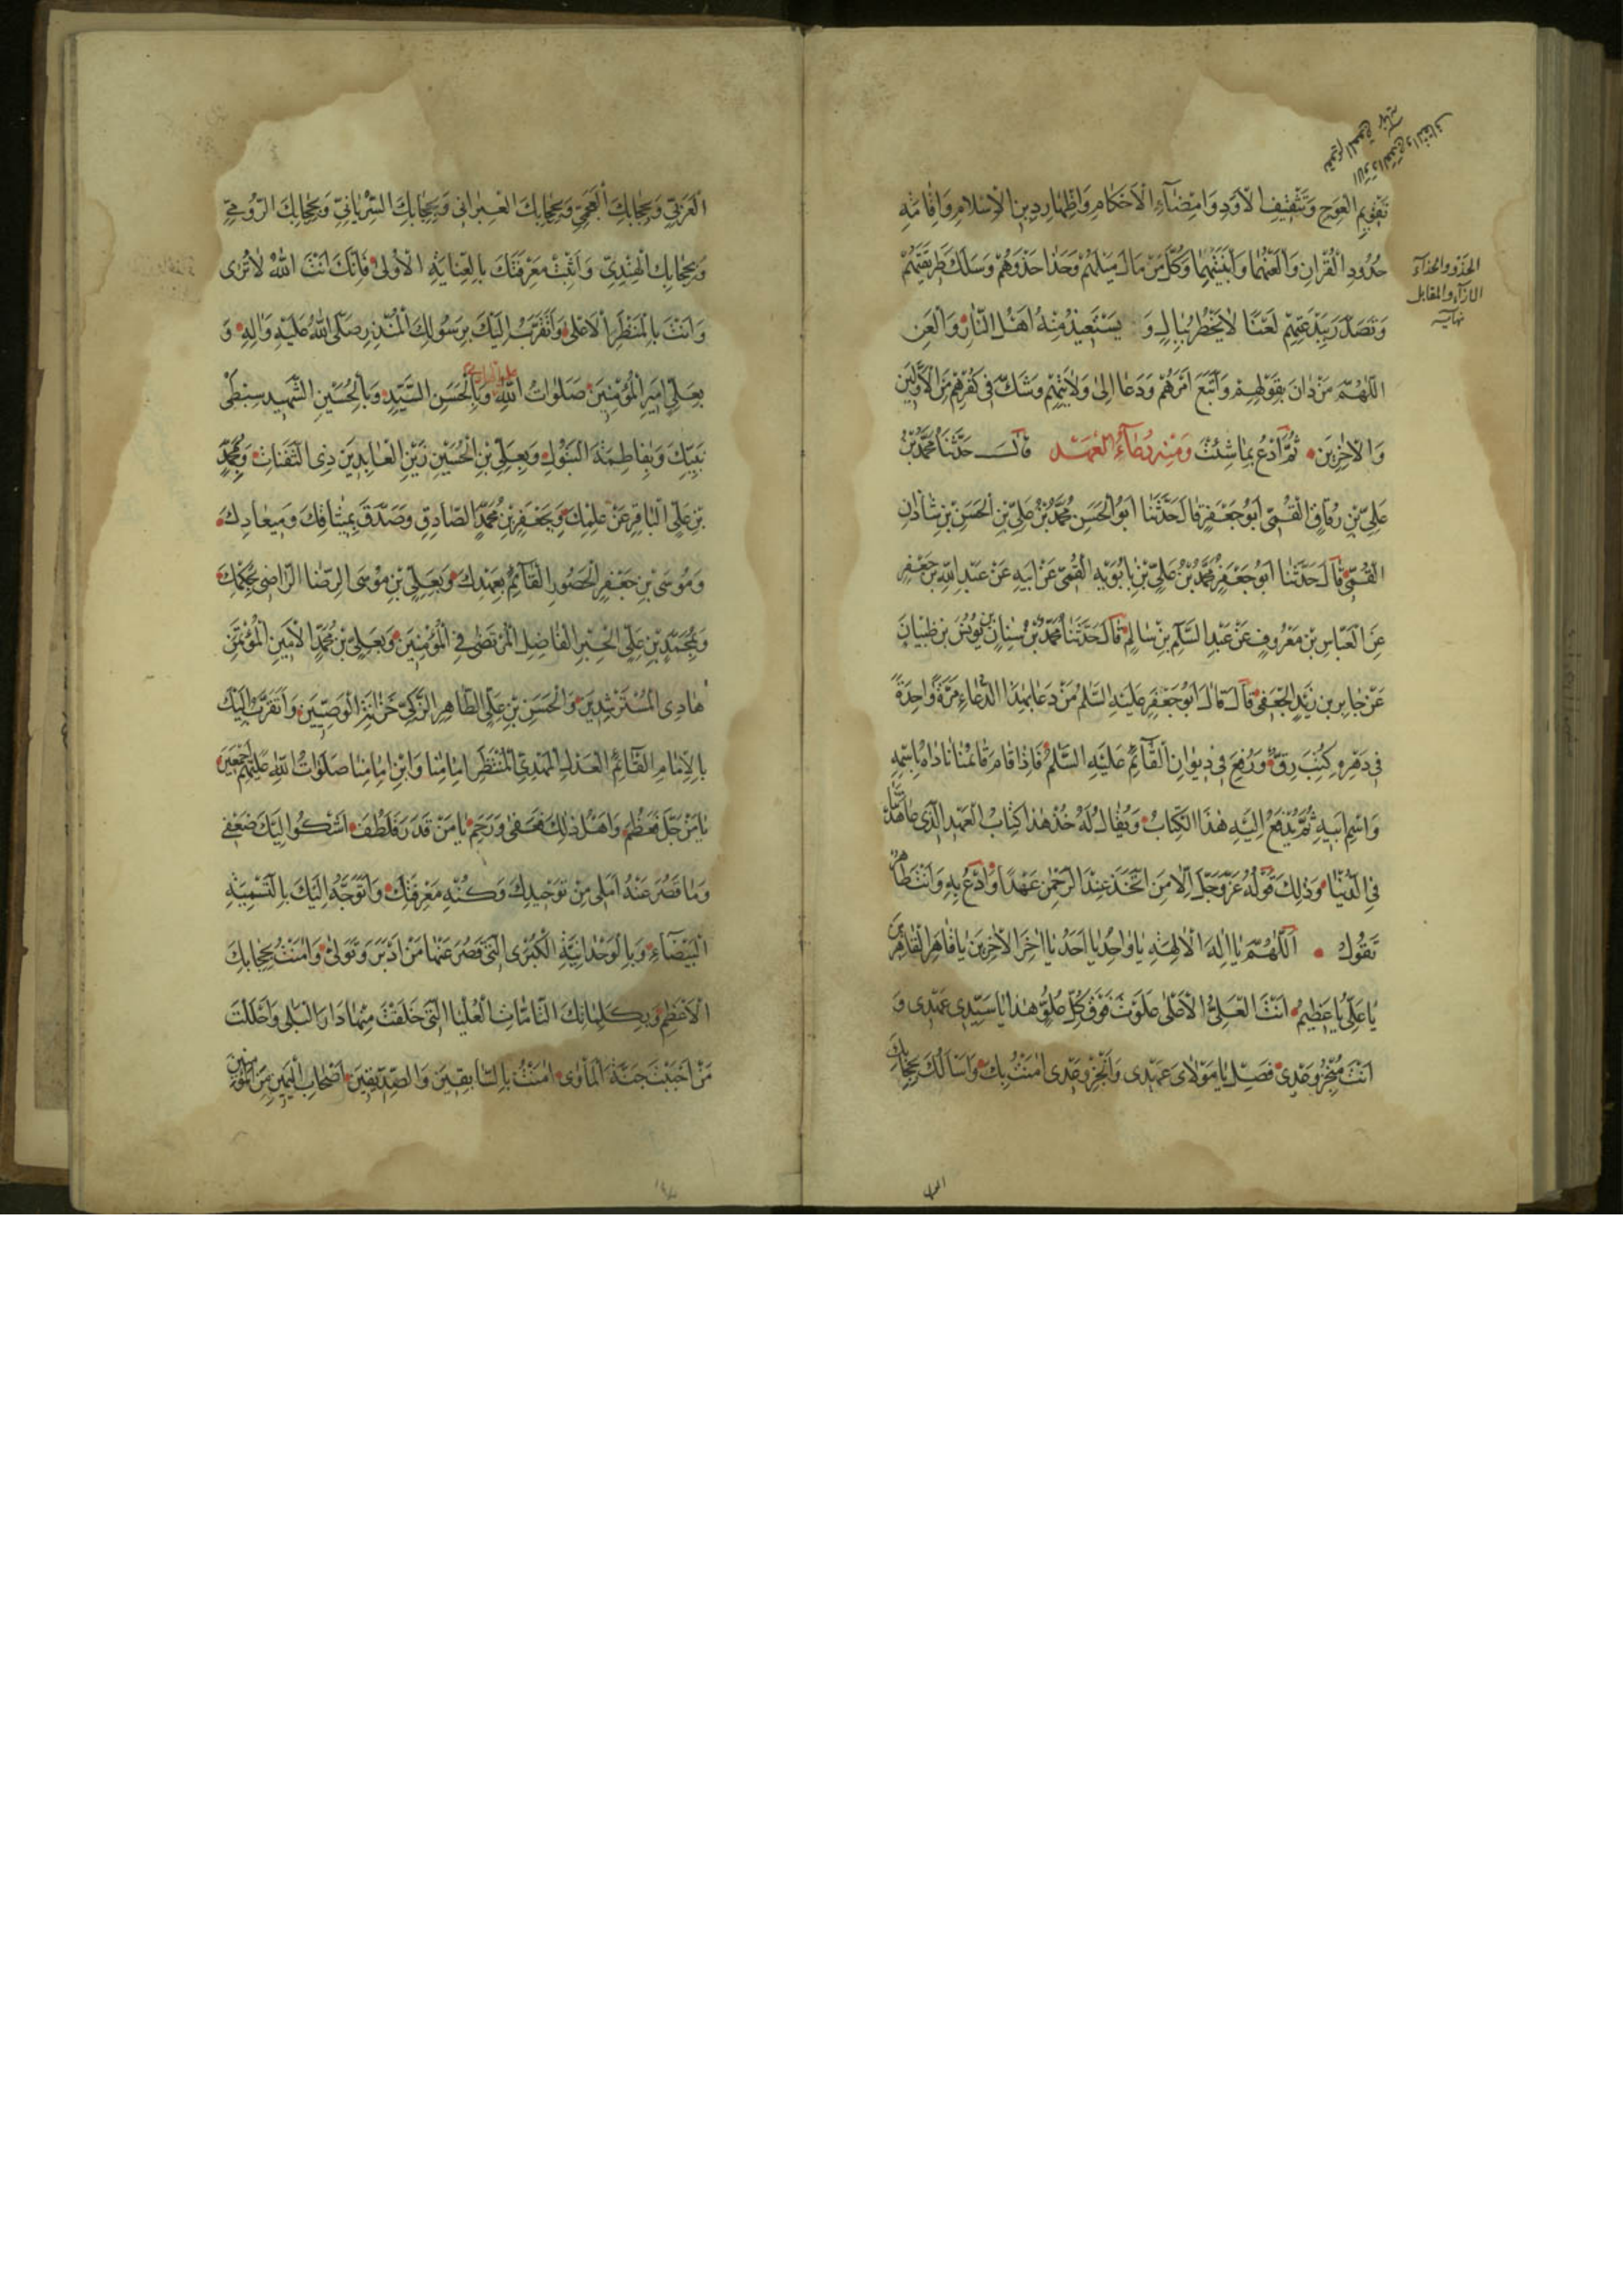 تَقْوِيمِ الْعِوَجِ وَتَثْقِيفِ الْأَوَدِ وَامْضَآءِ الْاَحْكامِ وَاِظْهارِ دينِ الْاِسْلامِ وَاِقامَةِ
حُدُودِ الْقُرْانِ وَالْعَنْهُما وَابْنَتَيْهِما وَكُلَّ مَنْ مالَ مَيْلَهُمْ وَحَذا حَذْوَهُمْ وَسَلَكَ طَريقَتَهُمْ
وَتَصَدَّرَ بِبِدْعَتِهِمْ لَعْنًا لا يَخْطُرُ بِبالٍ وَ يَسْتَعيذُ مِنْهُ اَهْلُ النّارِ وَالْعَنِ
اللّهُمَّ مَنْ دانَ بِقَوْلِهِمْ وَاتَّبَعَ اَمْرَهُمْ وَدَعا اِلى وَلايَتِهِمْ وَشَكَّ فى كُفْرِهِمْ مِنَ الْاَوَّلينَ
وَالْاخِرينَ ثُمَّ ادْعُ بِما شِئْتَ وَمِنْه دُعآءُ الْعَهْدِ قالَ حَدَّثَنا مُحَمَّدُ بْنُ
عَلِيِّ بْنِ رِقاقٍ الْقُمّى اَبُو جَعْفَرٍ قالَ حَدَّثَنا اَبُو الْحَسَنِ مُحَمَّدُ بْنُ عَلِيِّ بْنِ الْحَسَنِ بْنِ شاذانِ
الْقُمّى قالَ حَدَّثَنا اَبُو جَعْفَرٍ مُحَمَّدُ بْنُ عَلِيِّ بْنِ بابُوَيْهِ الْقُمّى عَنْ اَبيهِ عَنْ عَبْدِ اللهِ بْنِ جَعْفَرٍ
عَنِ الْعَبّاسِ بْنِ مَعْرُوفٍ عَنْ عَبْدِ السَّلامِ بْنِ سالِمٍ قالَ حَدَّثَنا مُحَمَّدُ بْنُ سِنانٍ عَنْ يُونُسَ بْنِ ظَبْيانَ
عَنْ جابِرِ بْنِ يَزيدَ الْجُعْفى قالَ قالَ اَبُو جَعْفَرٍ عَلَيْهِ السَّلامُ مَنْ دَعا بِهذَا الدُّعاءِ مَرَّةً واحِدَةً
فى دَهْرِهِ كُتِبَ فى رِقٍّ وَرُفِعَ فى ديوانِ الْقآئِمِ عَلَيْهِ السَّلامُ فَاِذا قامَ قائِمُنا ناداهُ بِاسْمِهِ
وَاسْمِ اَبيهِ ثُمَّ يُدْفَعُ اِلَيْهِ هذَا الْكِتابُ وَيُقالُ لَهُ خُذْ هذا كِتابُ الْعَهْدِ الَّذى عاهَدْتَنا
فِى الدُّنْيا وَذلِكَ قَوْلُهُ عَزَّ وَجَلَّ اِلّا مَنِ اتَّخَذَ عِنْدَ الرَّحْمنِ عَهْدًا وَادْعُ بِهِ وَاَنْتَ طاهِرٌ
تَقُولُ اَللّهُمَّ يا اِلهَ الْالِهَةِ يا واحِدُ يا اَحَدُ يا اخِرَ الْاخِرينَ يا قاهِرَ الْقاهِرينَ
يا عَلِيُّ يا عَظيمُ اَنْتَ الْعَلِيُّ الْاَعْلى عَلَوْتَ فَوْقَ كُلِّ عُلُوٍّ هذا يا سَيِّدى عَهْدى وَ
اَنْتَ مُنْجِزُ وَعْدى فَصِلْ يا مَوْلاىَ عَهْدى وَاَنْجِزْ وَعْدى امَنْتُ بِكَ وَاَسْاَلُكَ بِحِجابِكَ
الحذو والحذآء
الازآء والمقابل
نهايه
الْعَرَبِيِّ وَبِحِجابِكَ الْعَجَمِيِّ وَبِحِجابِكَ الْعِبْرانى وَبِحِجابِكَ السُّرْيانِيِّ وَبِحِجابِكَ الرُّومِيِّ
وَبِحِجابِكَ الْهِنْدِيِّ وَاَثْبِتْ مَعْرِفَتَكَ بِالْعِنايَةِ الْاُولى فَاِنَّكَ اَنْتَ اللهُ لا تُرى
وَاَنْتَ بِالْمَنْظَرِ الْاَعْلى وَاَتَقَرَّبُ اِلَيْكَ بِرَسُولِكَ الْمُنْذِرِ صَلَّى اللهُ عَلَيْهِ وَالِهِ وَ
بِعَلِيٍّ اَميرِ الْمُؤْمِنينَ صَلَواتُ اللهِ وَبِالْحَسَنِ السَّيِّدِ وَبِالْحُسَيْنِ الشَّهيدِ سِبْطَىْ
نَبِيِّكَ وَبِفاطِمَةَ الْبَتُولِ وَبِعَلِيِّ بْنِ الْحُسَيْنِ زَيْنِ الْعابِدينَ ذِى الثَّفَناتِ وَبِمُحَمَّدِ
بْنِ عَلِيٍّ الْباقِرِ عَنْ عِلْمِكَ وَبِجَعْفَرِ بْنِ مُحَمَّدٍ الصّادِقِ وَصَدَّقَ بِميثاقِكَ وَميعادِكَ
وَمُوسَى بْنِ جَعْفَرٍ الْحَصُورِ الْقآئِمِ بِعَهْدِكَ وَبِعَلِيِّ بْنِ مُوسَى الرِّضا الرّاضى بِحُكْمِكَ
وَبِمُحَمَّدِ بْنِ عَلِيٍّ الْحِبْرِ الْفاضِلِ الْمُرْتَضى فِى الْمُؤْمِنينَ وَبِعَلِيِّ بْنِ مُحَمَّدٍ الْاَمينِ الْمُؤْتَمَنِ
هادِى الْمُسْتَرْشِدينَ وَالْحَسَنِ بْنِ عَلِيٍّ الطّاهِرِ الزَّكِيِّ خَزانَةِ الْوَصِيّينَ وَاَتَقَرَّبُ اِلَيْكَ
بِالْاِمامِ الْقآئِمِ الْعَدْلِ الْمَهْدِيِّ الْمُنْتَظَرِ اِمامِنا وَابْنِ اِمامِنا صَلَواتُ اللهِ عَلَيْهِمْ اَجْمَعينَ
يا مَنْ جَلَّ فَعَظُمَ وَاَهْلُ ذلِكَ فَعَفى وَرَحِمَ يا مَنْ قَدَرَ فَلَطُفَ اَشْكُوا اِلَيْكَ ضَعْفى
وَما قَصُرَ عَنْهُ اَمَلى مِنْ تَوْحيدِكَ وَكُنْهِ مَعْرِفَتِكَ وَاَتَوَجَّهُ اِلَيْكَ بِالتَّسْمِيَةِ
الْبَيْضآءِ وَبِالْوَحْدانِيَّةِ الْكُبْرى الَّتى قَصُرَ عَنْها مَنْ اَدْبَرَ وَتَوَلّى وَامَنْتُ بِحِجابِكَ
الْاَعْظَمِ وَبِكَلِماتِكَ التّامّاتِ الْعُلْيا الَّتى خَلَقْتَ مِنْها دارَ الْبَلى وَاَحْلَلْتَ
مَنْ اَحْبَبْتَ جَنَّةَ الْمَأْوى امَنْتُ بِالسّابِقينَ وَالصِّدّيقينَ اَصْحابِ الْيَمينِ مِنَ الْمُؤْمِنينَ